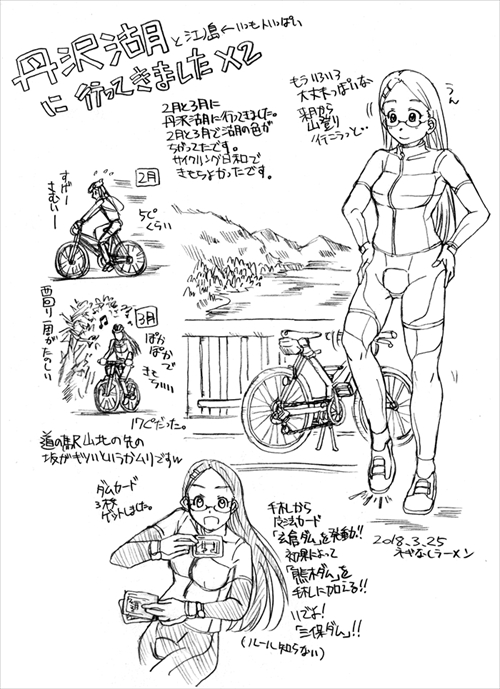 丹沢湖と江ノ島←いつも人いっぱい
に行ってきました×2
2月と3月に
丹沢湖に行ってきました。
2月と3月で湖の色が
ちがってたです。
サイクリング日和で
きもちよかったです。
もういろいろ
大丈夫っぽいな
来月から
山登り
行こうっと…
うん
2月
すげー
さむいー
5℃
くらい
西回り一周がたのしい
3月
ぽか
ぽかで
きも
ちいい
17℃だった。
道の駅山北の先の
坂がキツいというかムリですw
ダムカード
3枚
ゲットしました。
手札から
魔法カード
「玄倉ダム」を発動!!
効果によって
「熊木ダム」を
手札に加える!!
いでよ!
「三保ダム」!!
(ルール知らない)
2018.3.25
ネヤなしラーメン